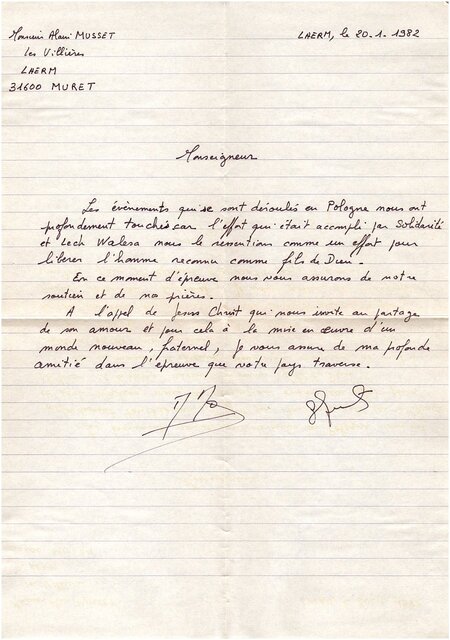 Monsieur Alain MUSSET
LAERM, le 20.1.1982
Les Villières
LAERM
31600 MURET
Monseigneur
Les évènements qui se sont déroulés en Pologne nous ont
profondement touchés car l'effort qui était accompli par Solidarité
et Lech Walesa nous le ressentions comme un effort pour
libérer l'homme reconnu comme fils de Dieu.
En ce moment d'épreuve nous vous assurons de notre
soutien et de nos prières.
A l'appel de Jesus Christ qui nous invite au partage
de son amour et pour cela à la mise en œuvre d'un
monde nouveau, fraternel, je vous assure de ma profonde
amitié dans l'épreuve que votre pays traverse.